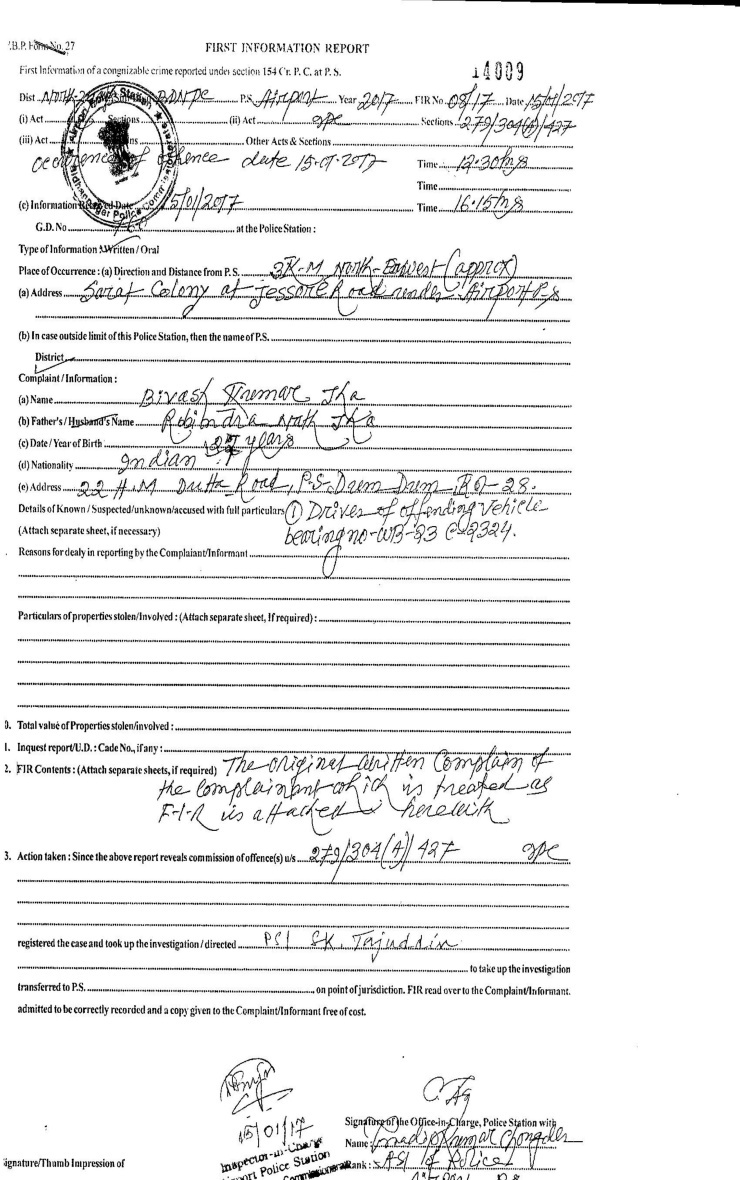 .B.P. Form No. 27
FIRST INFORMATION REPORT
First Information of a congnizable crime reported under section 154 Cr. P. C. at P. S.
14009
Dist. North- BDNPC P.S. Airport Year 2017 FIR No. 08/17 Date 15/01/2017
(i) Act Sections (ii) Act IPC Sections 279/304(A)/427
(iii) Act Other Acts & Sections
occurrence of offence date 15-01-2017 Time 12.30 hrs
Time
(c) Information Received Date 15/01/2017 Time 16.15 hrs
G.D. No at the Police Station :
Type of Information : Written / Oral
Place of Occurrence : (a) Direction and Distance from P. S. 3K-M North- (approx)
(a) Address Sarat Colony at Jessore Road under Airport P.S
(b) In case outside limit of this Police Station, then the name of P.S.
District
Complaint / Information :
(a) Name Bivash Kumar Jha
(b) Father's / Husband's Name Robindra Nath Jha
(c) Date / Year of Birth 27 years
(d) Nationality Indian
(e) Address 22 H.M Dutta Road, P.S- Dum Dum, - 28.
Details of Known / Suspected/unknown/accused with full particulars (1) Driver of offending vehicle
(Attach separate sheet, if necessary) bearing no-WB-23 C-2324.
Reasons for dealy in reporting by the Complaiant/Informant
Particulars of properties stolen/Involved : (Attach separate sheet, If required) :
0. Total value of Properties stolen/involved :
1. Inquest report/U.D. : Cade No., if any :
2. FIR Contents : (Attach separate sheets, if required) The original written Complain of
the complainant which is treated as
F-I-R is attached herewith
3. Action taken : Since the above report reveals commission of offence(s) u/s 279/304(A)/427 IPC
registered the case and took up the investigation / directed PSI SK. Tajuddin
to take up the investigation
transferred to P.S. on point of jurisdiction. FIR read over to the Complaint/Informant.
admitted to be correctly recorded and a copy given to the Complaint/Informant free of cost.
15/01/17
Inspector-in-Charge
Airport Police Station
Signature of the Office-in-Charge, Police Station with
Name : Kumar
Rank : ASI of Police
Signature/Thumb Impression of
Airport P.S